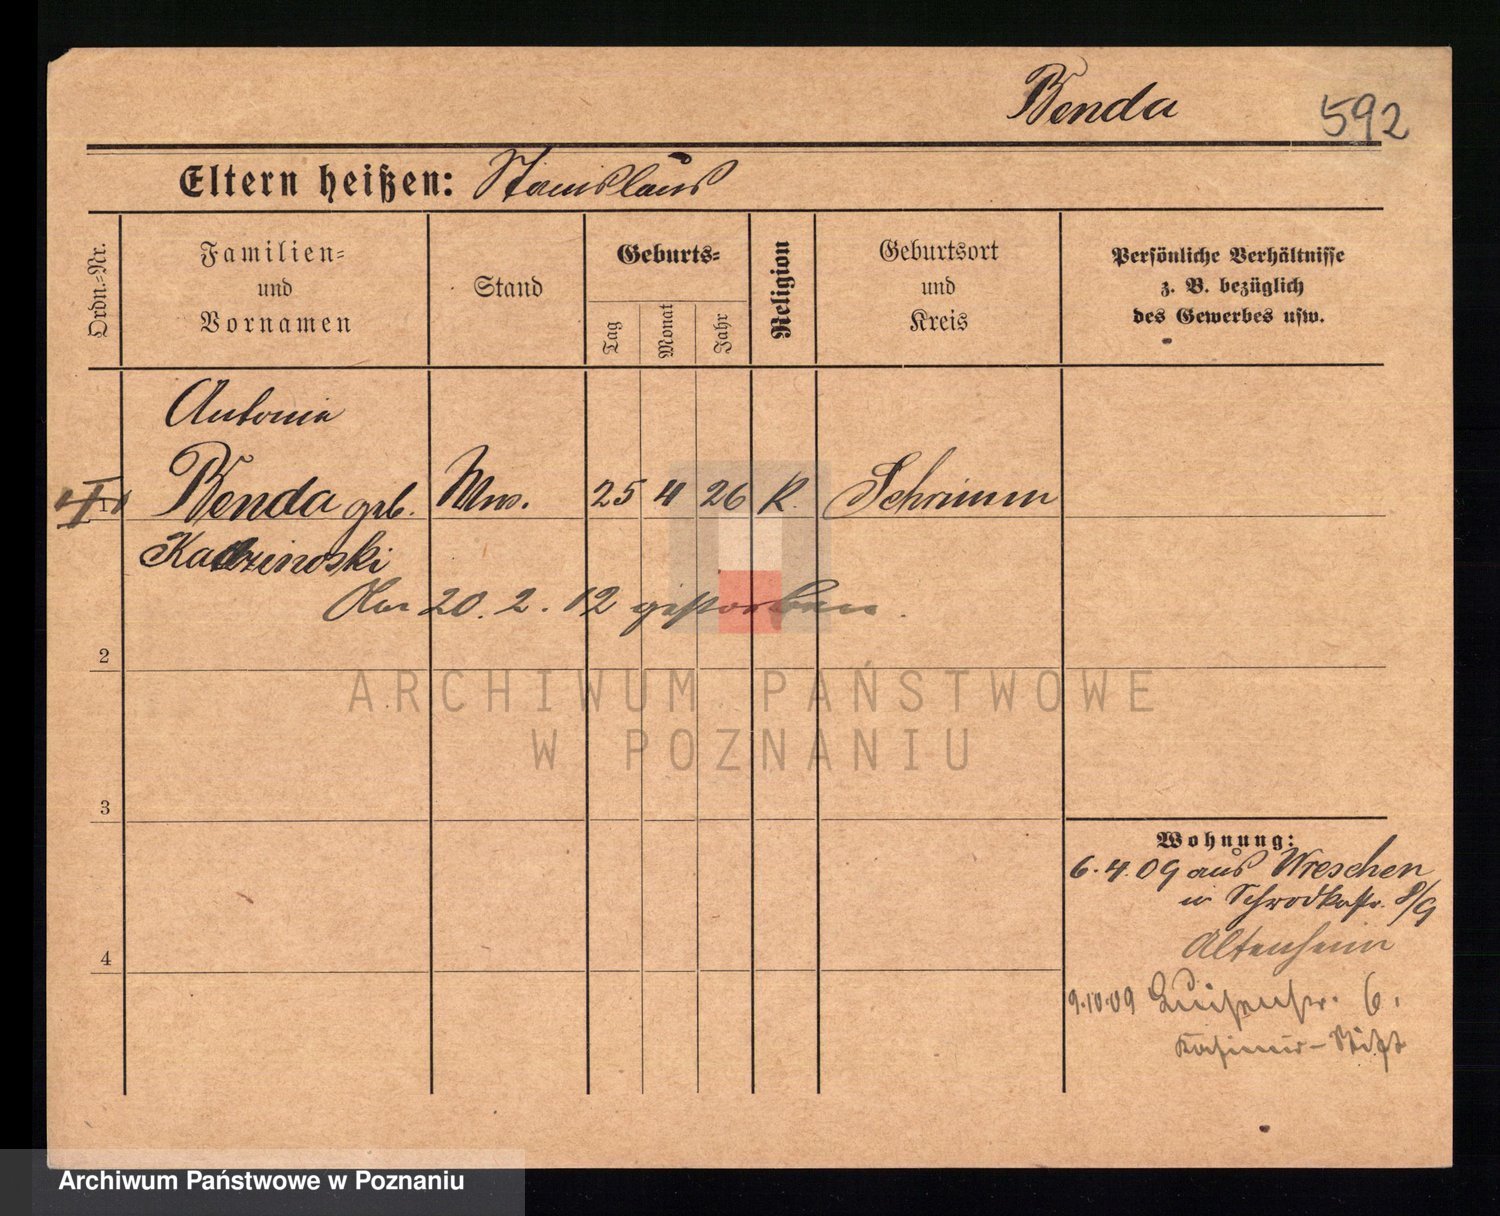 Benda
592
Eltern heißen: Stanislaus
Ordn.-Nr.
Familien-
und
Vornamen
Stand
Geburts-
Tag
Monat
Jahr
Religion
Geburtsort
und
Kreis
Persönliche Verhältnisse
z. B. bezüglich
des Gewerbes usw.
Antonia
1 Benda geb. Www. 25 4 26 K. Schrimm
Am 20. 2. 12 gestorben.
2
ARCHIWUM PAŃSTWOWE
W POZNANIU
3
Wohnung:
6.4.09 aus Wreschen
n Schrodkastr. 8/9
Altenheim
4
9.10.09 Luisenstr. 6.
Kasimir-Stift
Archiwum Państwowe w Poznaniu